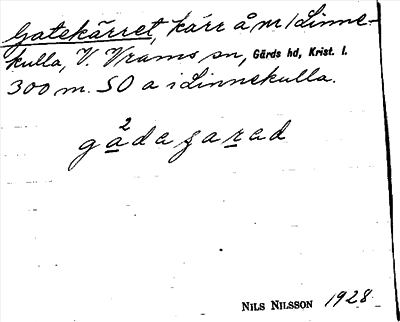 Gatekärret, kärr å m/Linne-
kulla, V. Vrams sn, Gärds hd, Krist. l.
300 m. SO a i Linnekulla.
NILS NILSSON 1928